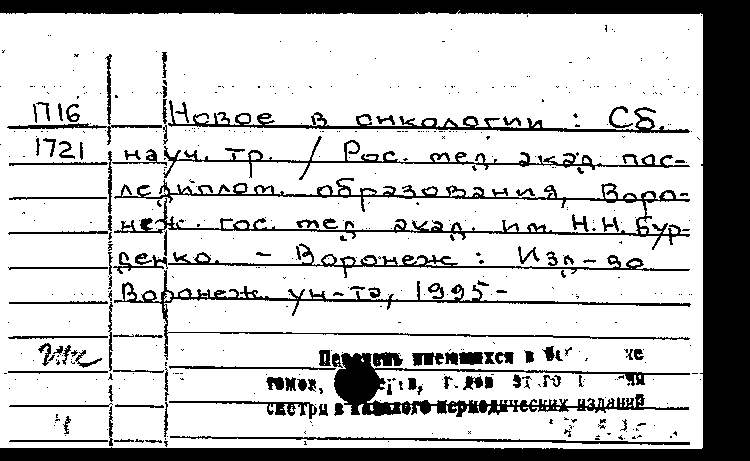 П16 Новое в онкологии : Сб.
1721 науч. тр. / Рос. мед. акад. пос-
ледиплом. образования, Воро-
неж. гос. мед. акад. им. Н.Н. Бур-
денко. - Воронеж : Изд-во
Воронеж. ун-та, 1995-
Перечень имеющихся в
томов,
смотри в каталоге периодических изданий